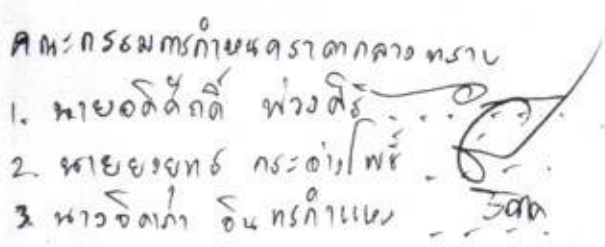 คณะกรรมการกำหนดราคากลาง ทราบ
1. นายอดิศักดิ์ พ่วงศิริ
2. นายยงยุทธ กระจ่างโพธิ์
3. นางจิดาภา อินทรกำแหง